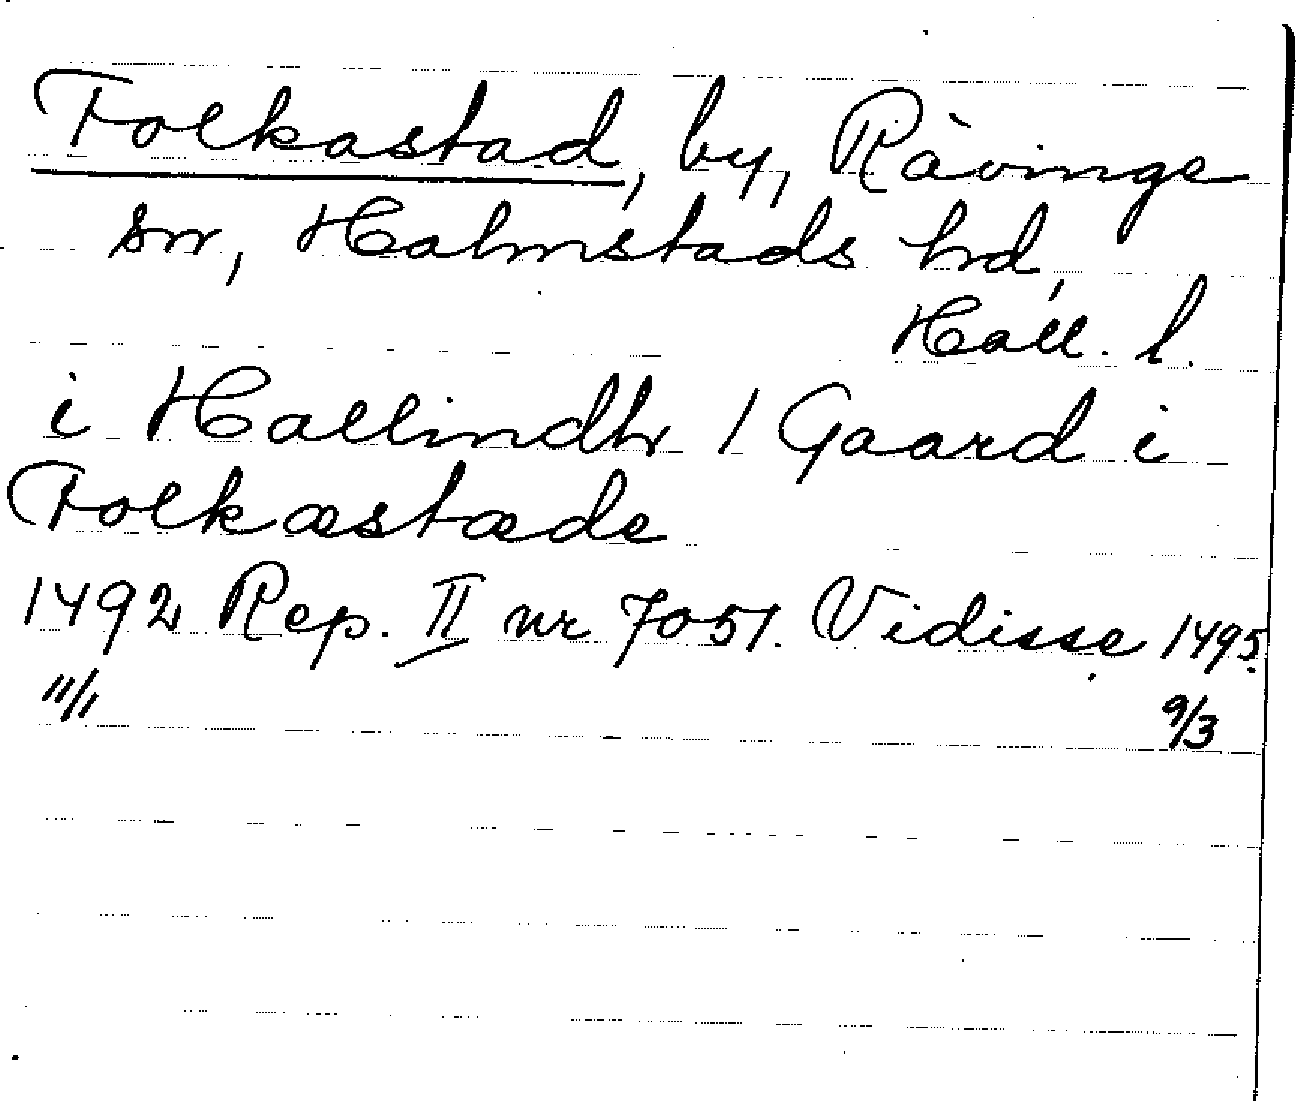 Folkastad, by, Råvinge
sn, Halmstads hd,
Hall. l.
i Hallindh 1 Gaard i
Folkæstæde
1492 Rep. II nr 7051. Vidisse 1495.
11/1 9/3